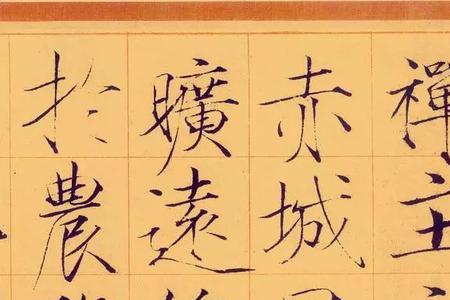 禪主
赤城
曠遠
於農